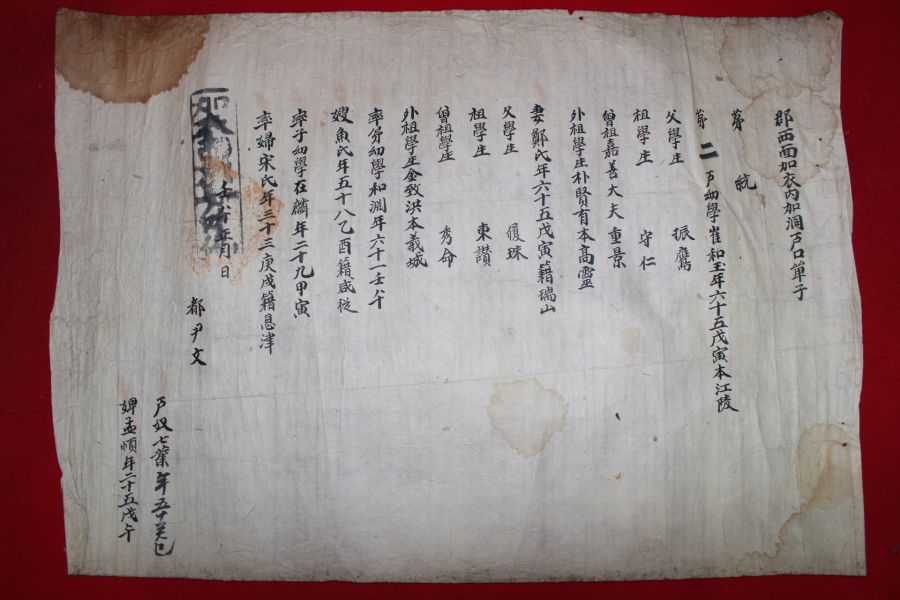 郡西面加衣內加洞戶口單子
第　統
第二戶幼學崔和玉年六十五戊寅本江陵
父學生　振鷹
祖學生　守仁
曾祖嘉善大夫重景
外祖學生朴賢有本高靈
妻鄭氏年六十五戊寅籍瑞山
父學生　復珠
祖學生　東讚
曾祖學生　秀命
外祖學生金致洪本義城
率弟幼學和淵年六十一壬午
嫂魚氏年五十八乙酉籍咸從
率子幼學在麟年二十九甲寅
率婦宋氏年三十三庚戌籍恩津
壬午正月日
都尹文
戶奴七葉年五十癸巳
婢孟順年二十五戊午